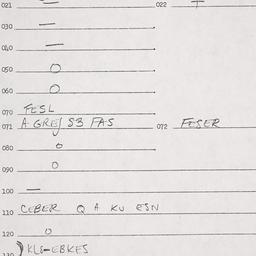 021 — 022 +
030 —
040 —
050 O
060 O
070 FESL
071 A GREJ S3 FAS 072 FESER
080 O
090 O
100 —
110 CEBER Q A KU ESN
120 O
130 KLG-EBKES